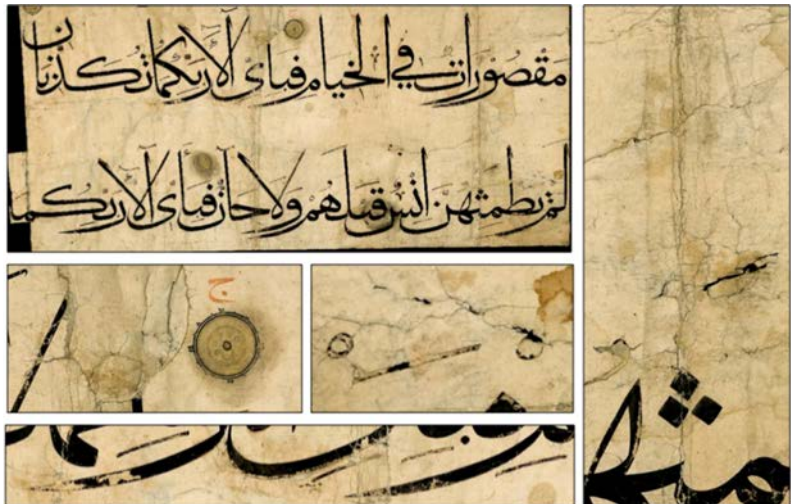 مقصورات في الخيام فبأي آلاء ربكما تكذبان
لم يطمثهن إنس قبلهم ولا جان فبأي آلاء ربكما
ج